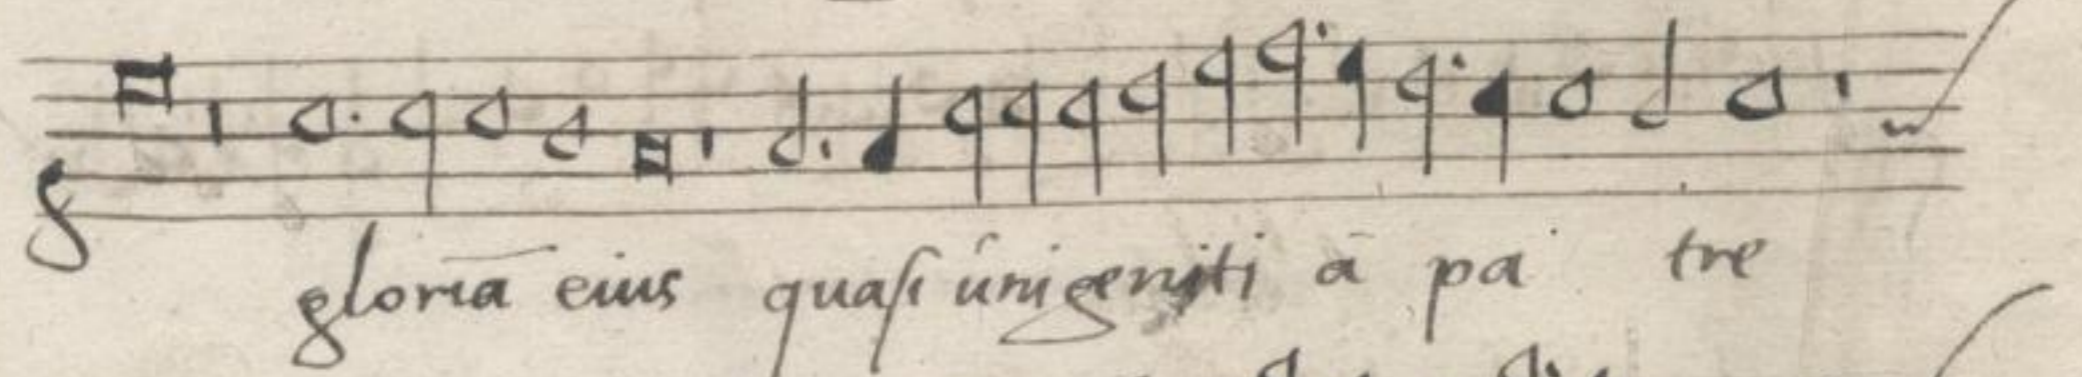 gloriā eius quaſi únigeniti ā pa tre